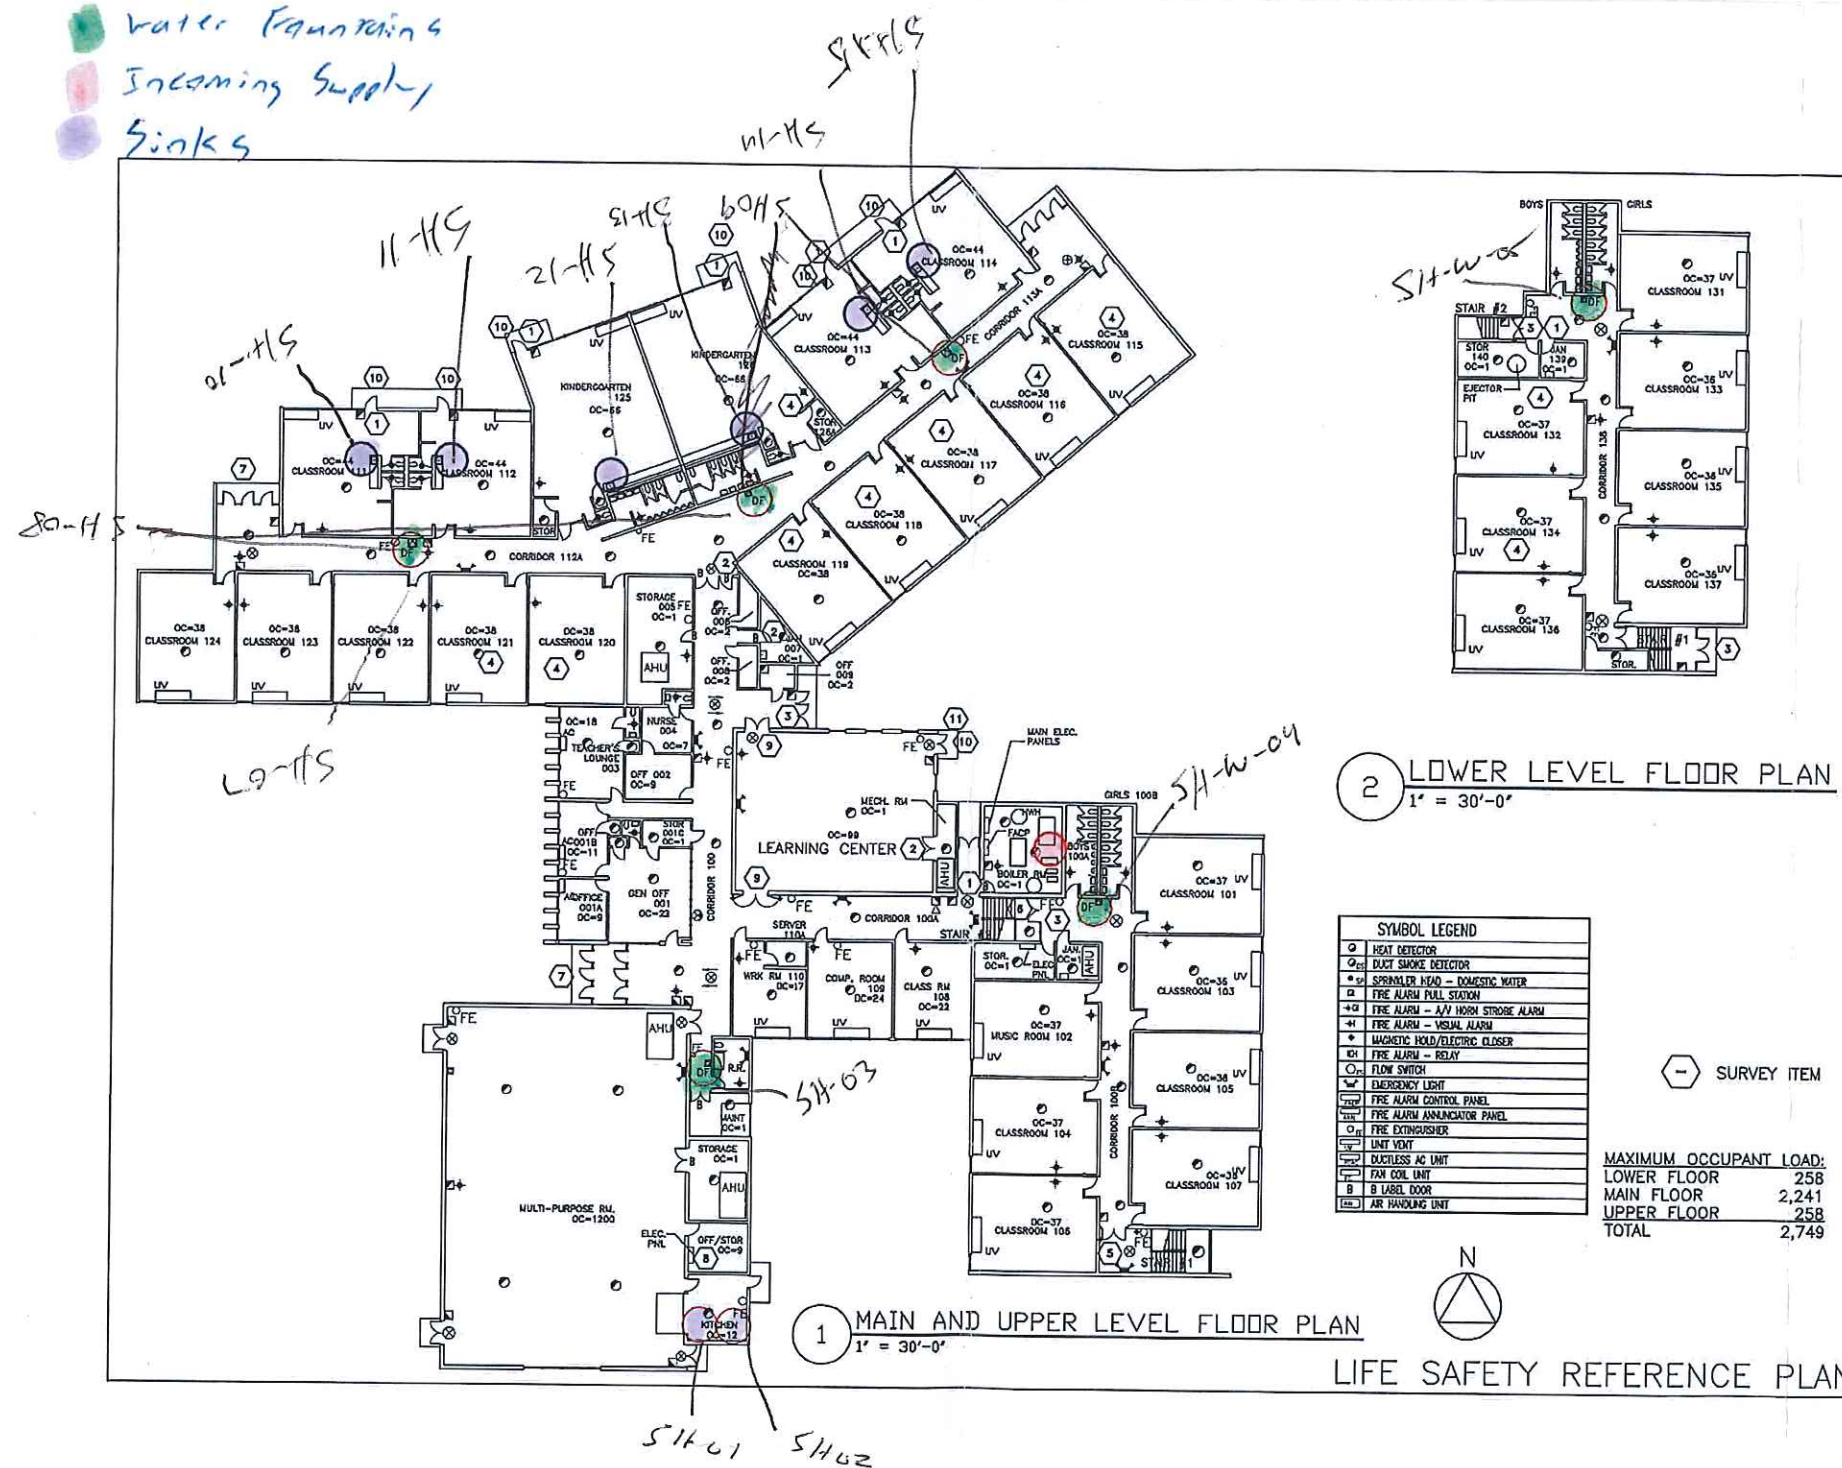 Water Fountains
Incoming Supply
Sinks
SH-11
SH-12
SH-13
SH09
SH-10
SH-08
SH-07
SH-W-05
SH-W-04
SH-03
SH-01
SH02
UV
OC=44
CLASSROOM 111
OC=44
CLASSROOM 112
KINDERGARTEN
125
OC=66
KINDERGARTEN
126
OC=66
OC=44
CLASSROOM 113
OC=44
CLASSROOM 114
OC=38
CLASSROOM 115
OC=38
CLASSROOM 116
OC=38
CLASSROOM 117
OC=38
CLASSROOM 118
CLASSROOM 119
OC=38
CORRIDOR 113A
STOR
126A
STOR
FE
DF
CORRIDOR 112A
OC=38
CLASSROOM 124
OC=38
CLASSROOM 123
OC=38
CLASSROOM 122
OC=38
CLASSROOM 121
OC=38
CLASSROOM 120
STORAGE
005
OC=1
AHU
OFF.
006
OC=2
007
OC=1
OFF.
008
OC=2
OFF
009
OC=2
OC=18
AC
TEACHER'S
LOUNGE
003
NURSE
004
OC=7
OFF 002
OC=9
OFF
001B
OC=11
STOR
001C
OC=1
OFFICE
001A
OC=9
GEN OFF
001
OC=22
CORRIDOR 100
MECH. RM
OC=1
OC=99
LEARNING CENTER
AHU
MAIN ELEC.
PANELS
HWH
FACP
BOILER RM
OC=1
GIRLS 100B
BOYS
100A
DF
CORRIDOR 100A
STAIR
SERVER
110A
WRK RM 110
OC=17
COMP. ROOM
109
OC=24
CLASS RM
108
OC=22
STOR.
OC=1
ELEC
PNL
JAN.
OC=1
AHU
OC=37
CLASSROOM 101
OC=36
CLASSROOM 103
OC=38
CLASSROOM 105
OC=38
CLASSROOM 107
OC=37
MUSIC ROOM 102
OC=37
CLASSROOM 104
OC=37
CLASSROOM 106
CORRIDOR 100B
AHU
DF
R.R.
MAINT
OC=1
STORAGE
OC=1
AHU
MULTI-PURPOSE RM.
OC=1200
ELEC.
PNL
OFF/STOR
OC=9
FE
KITCHEN
OC=12
1
MAIN AND UPPER LEVEL FLOOR PLAN
1" = 30'-0"
BOYS
GIRLS
DF
STAIR #2
STOR
140
OC=1
JAN
139
OC=1
EJECTOR
PIT
OC=37
CLASSROOM 131
OC=37
CLASSROOM 132
OC=36
CLASSROOM 133
OC=37
CLASSROOM 134
OC=36
CLASSROOM 135
OC=37
CLASSROOM 136
OC=36
CLASSROOM 137
CORRIDOR 138
STOR.
2
LOWER LEVEL FLOOR PLAN
1" = 30'-0"
SYMBOL LEGEND
HEAT DETECTOR
DUCT SMOKE DETECTOR
SPRINKLER HEAD - DOMESTIC WATER
FIRE ALARM PULL STATION
FIRE ALARM - A/V HORN STROBE ALARM
FIRE ALARM - VISUAL ALARM
MAGNETIC HOLD/ELECTRIC CLOSER
FIRE ALARM - RELAY
FLOW SWITCH
EMERGENCY LIGHT
FIRE ALARM CONTROL PANEL
FIRE ALARM ANNUNCIATOR PANEL
FIRE EXTINGUISHER
UNIT VENT
DUCTLESS AC UNIT
FAN COIL UNIT
B B LABEL DOOR
AIR HANDLING UNIT
SURVEY ITEM
MAXIMUM OCCUPANT LOAD:
LOWER FLOOR 258
MAIN FLOOR 2,241
UPPER FLOOR 258
TOTAL 2,749
N
LIFE SAFETY REFERENCE PLAN